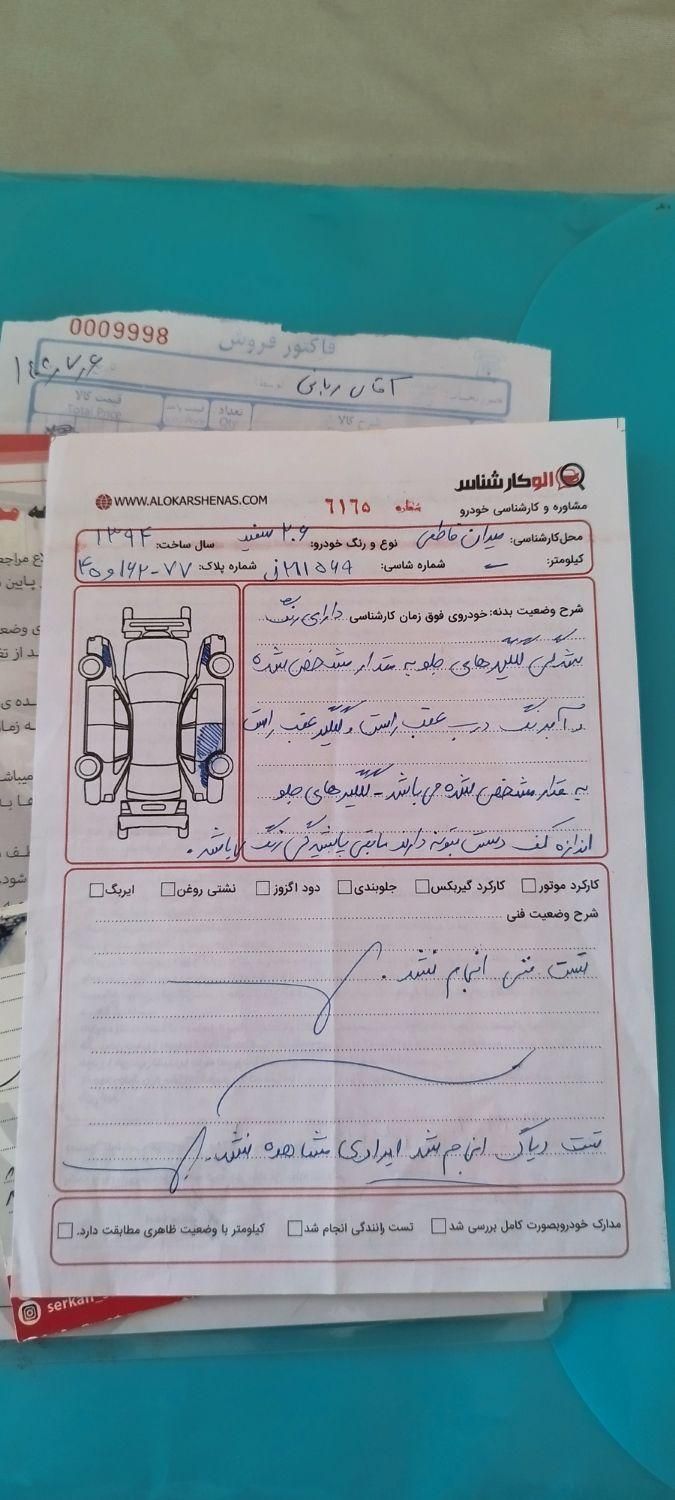 0009998
فاکتور فروش
آقای ربانی
قیمت کالا
Total Price
تعداد
Qty
الو کارشناس
مشاوره و کارشناسی خودرو
WWW.ALOKARSHENAS.COM
شماره ۶۱۶۵
محل کارشناسی: میدان فاطمی نوع و رنگ خودرو: ۲۰۶ سفید سال ساخت: ۱۳۹۴
کیلومتر: شماره شاسی: شماره پلاک: ۷۷-
شرح وضعیت بدنه: خودروی فوق زمان کارشناسی دارای رنگ
شدگی گلگیرهای جلو به مقدار مشخص شده
و آبرنگ درب عقب راست و گلگیر عقب راست
به مقدار مشخص شده می باشد - گلگیرهای جلو
اندازه کف دست بتونه دارند مابقی رنگ
کارکرد موتور کارکرد گیربکس جلوبندی دود اگزوز نشتی روغن ایربگ
شرح وضعیت فنی
تست فنی انجام نشد.
تست دیاگ انجام شد ایرادی مشاهده نشد.
مدارک خودرو بصورت کامل بررسی شد تست رانندگی انجام شد کیلومتر با وضعیت ظاهری مطابقت دارد.